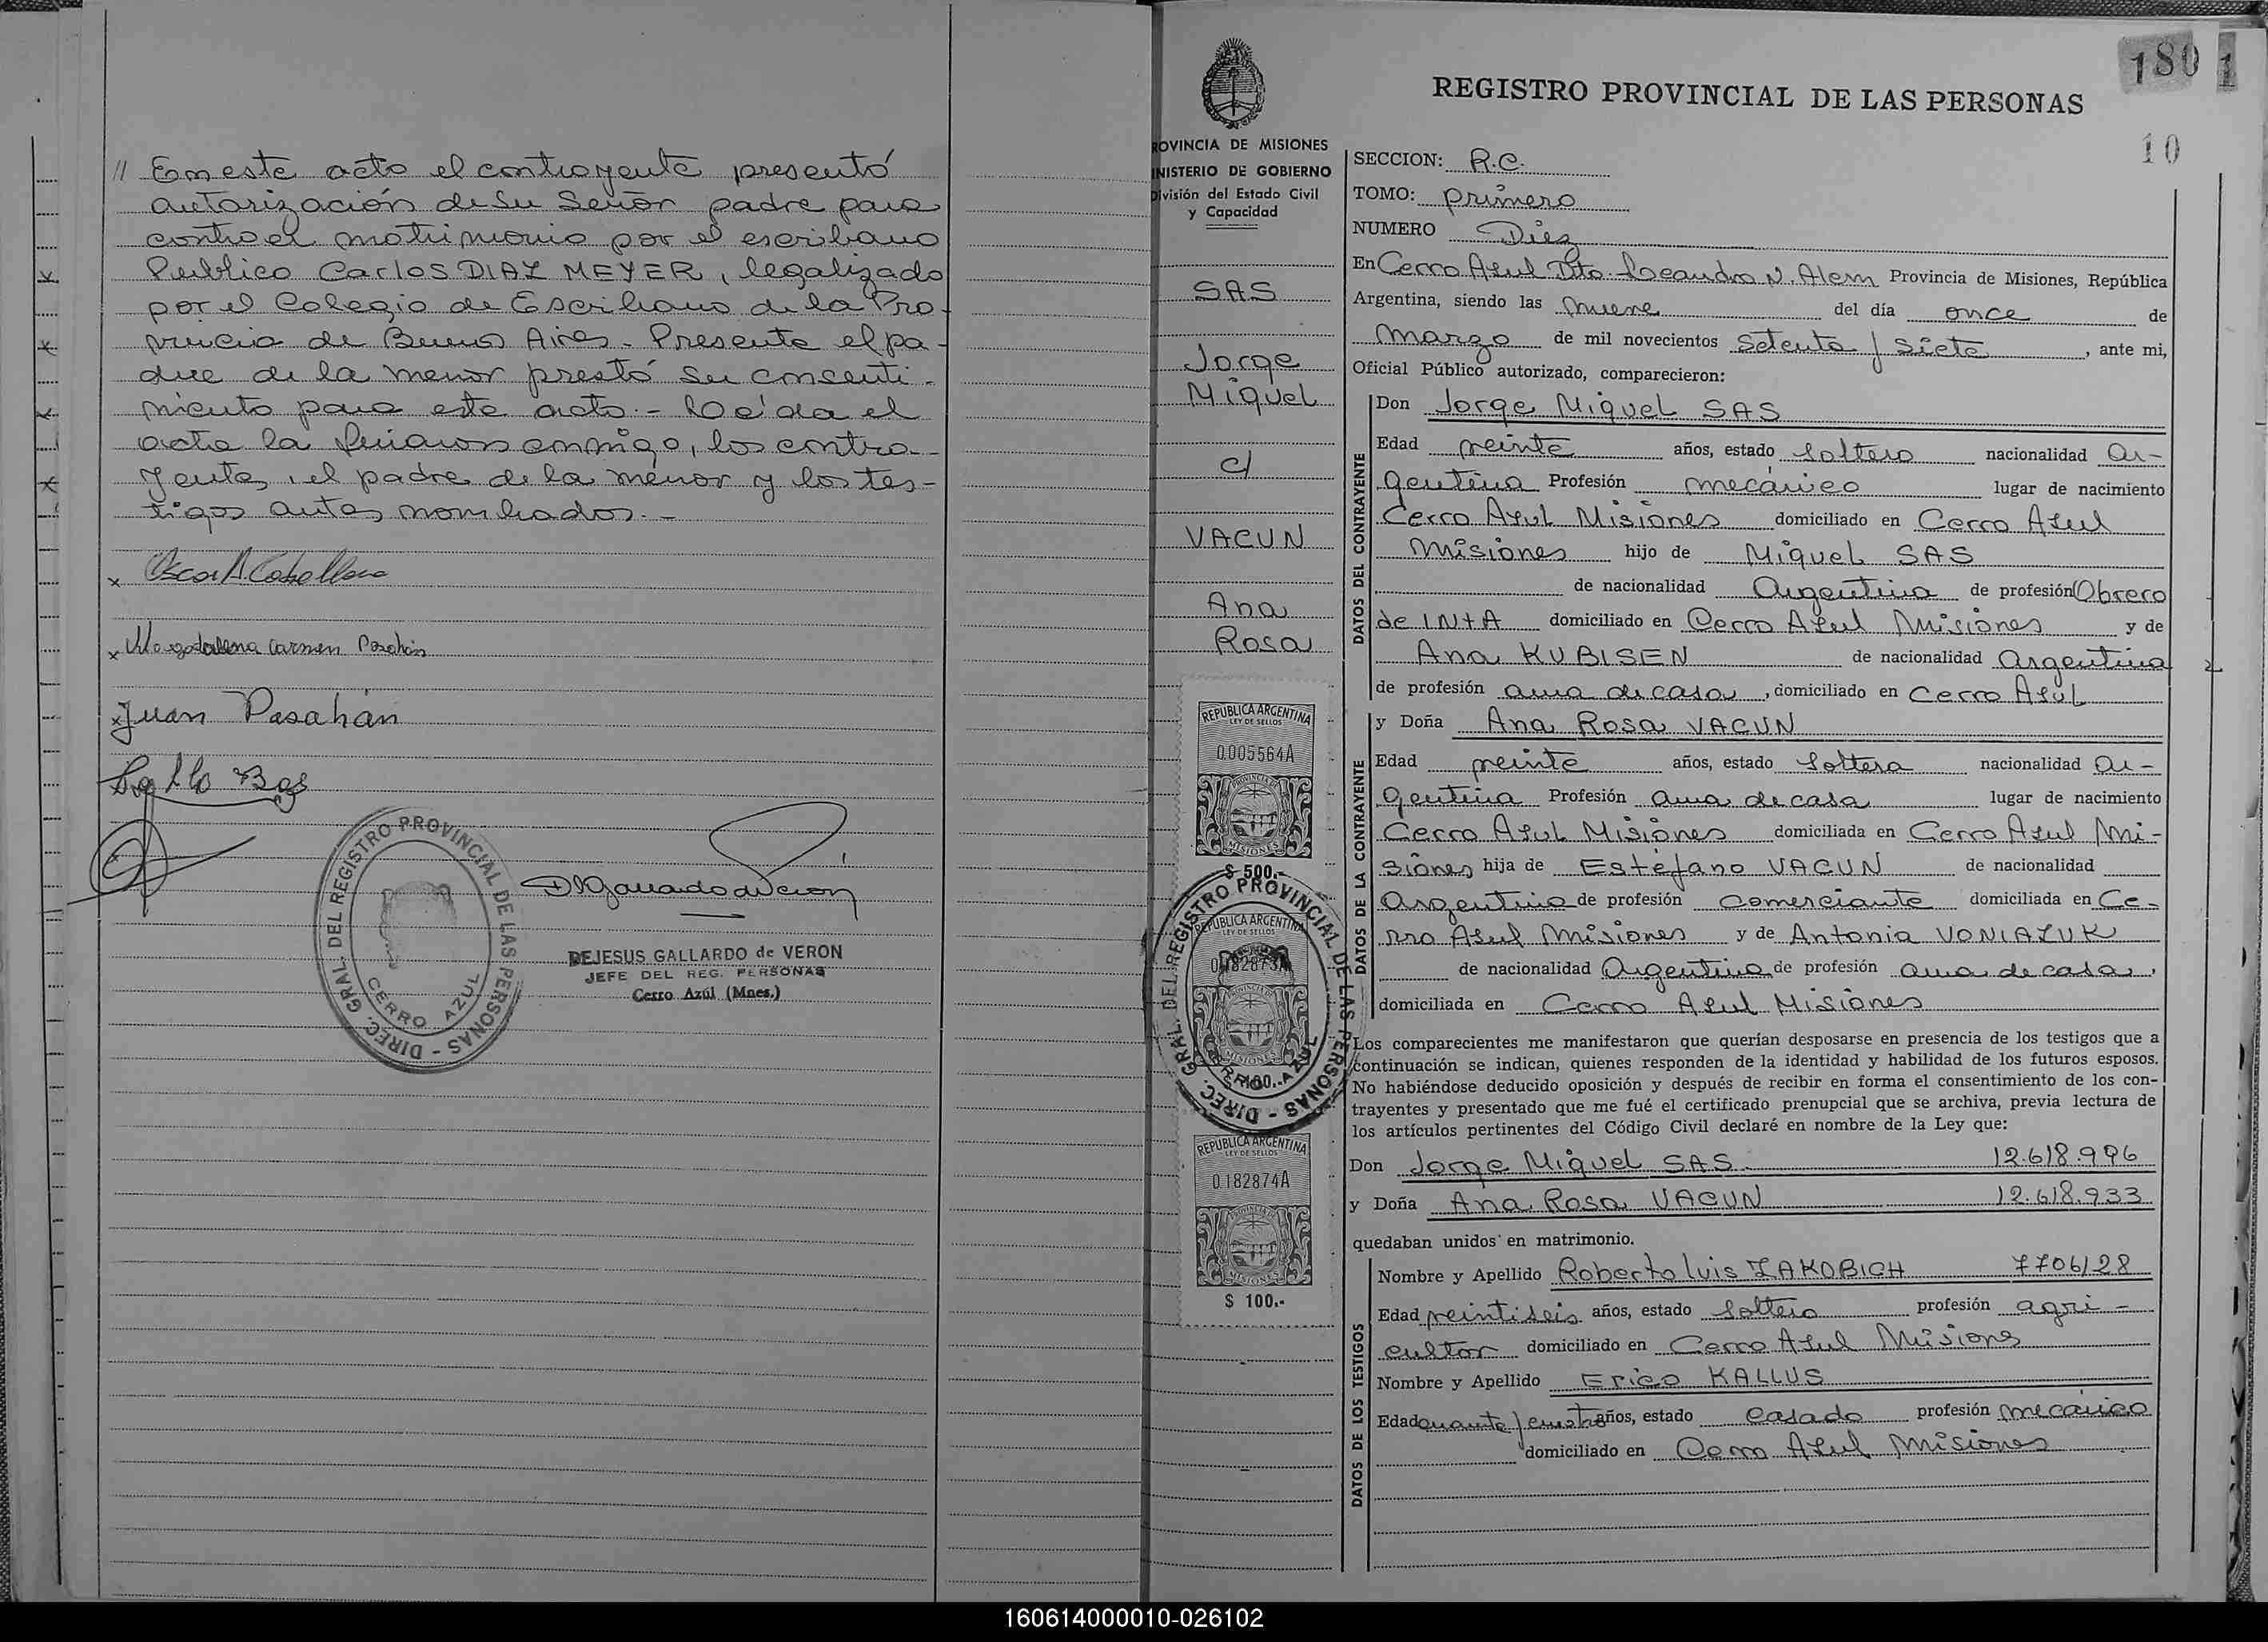 // En este acto el contrayente presentó
autorización de su Señor padre para
contraer matrimonio por el escribano
Publico Carlos DIAZ MEYER, legalizado
por el Colegio de Escribano de la Pro-
vincia de Buenos Aires. Presente el pa-
dre de la menor prestó su consenti-
miento para este acto.- Leída el
acta la firmaron conmigo, los contra-
yentes, el padre de la menor y los tes-
tigos antes nombrados.-
x Oscar A Caballero
x Magdalena Carmen Pasahán
x Juan Pasahán
DIREC. GRAL. DEL REGISTRO PROVINCIAL DE LAS PERSONAS -
CERRO AZUL
DEJESUS GALLARDO de VERON
JEFE DEL REG. PERSONAS
Cerro Azúl (Mnes.)
180 1
REGISTRO PROVINCIAL DE LAS PERSONAS
10
ROVINCIA DE MISIONES
INISTERIO DE GOBIERNO
División del Estado Civil
y Capacidad
SAS
Jorge
Miguel
c/
VACUN
Ana
Rosa
REPUBLICA ARGENTINA
LEY DE SELLOS
0.005564A
PROVINCIA DE
MISIONES
$ 500.-
DIREC. GRAL. DEL REGISTRO PROVINCIAL DE LAS PERSONAS -
REPUBLICA ARGENTINA
LEY DE SELLOS
0182873A
MISIONES
REPUBLICA ARGENTINA
LEY DE SELLOS
0182874A
MISIONES
$ 100.-
SECCION: R.C.
TOMO: primero
NUMERO Diez
En Cerro Azul Dto. Leandro N. Alem Provincia de Misiones, República
Argentina, siendo las nueve del día once de
marzo de mil novecientos setenta y siete, ante mi,
Oficial Público autorizado, comparecieron:
DATOS DEL CONTRAYENTE
Don Jorge Miguel SAS
Edad veinte años, estado soltero nacionalidad Ar-
gentina Profesión mecánico lugar de nacimiento
Cerro Azul Misiones domiciliado en Cerro Azul
Misiones hijo de Miguel SAS
de nacionalidad Argentina de profesión Obrero
de INTA domiciliado en Cerro Azul Misiones y de
Ana KUBISEN de nacionalidad Argentina
de profesión ama de casa, domiciliado en Cerro Azul
DATOS DE LA CONTRAYENTE
y Doña Ana Rosa VACUN
Edad veinte años, estado soltera nacionalidad Ar-
gentina Profesión ama de casa lugar de nacimiento
Cerro Azul Misiones domiciliada en Cerro Azul Mi-
siones hija de Estéfano VACUN de nacionalidad
Argentina de profesión comerciante domiciliada en Ce-
rro Azul Misiones y de Antonia VONIAZUK
de nacionalidad Argentina de profesión ama de casa,
domiciliada en Cerro Azul Misiones
Los comparecientes me manifestaron que querían desposarse en presencia de los testigos que a
continuación se indican, quienes responden de la identidad y habilidad de los futuros esposos.
No habiéndose deducido oposición y después de recibir en forma el consentimiento de los con-
trayentes y presentado que me fué el certificado prenupcial que se archiva, previa lectura de
los artículos pertinentes del Código Civil declaré en nombre de la Ley que:
Don Jorge Miguel SAS 12.618.996
y Doña Ana Rosa VACUN 12.618.933
quedaban unidos en matrimonio.
DATOS DE LOS TESTIGOS
Nombre y Apellido Roberto Luis ZAKOBICH 7706128
Edad veintiseis años, estado soltero profesión agri-
cultor domiciliado en Cerro Azul Misions
Nombre y Apellido Erico KALLUS
Edad años, estado casado profesión mecánico
domiciliado en Cerro Azul Misiones
160614000010-026102